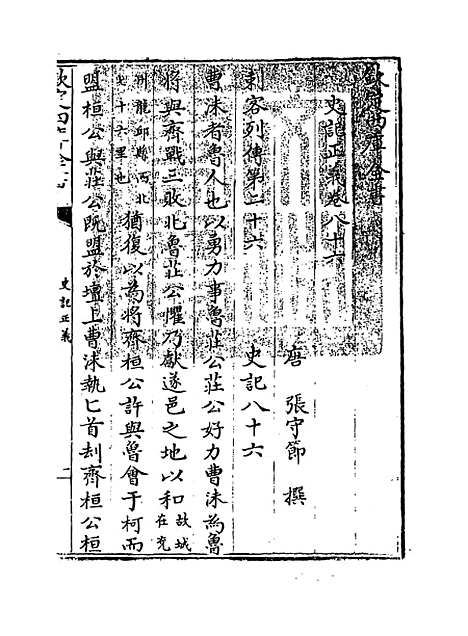 欽定四庫全書
史記正義卷八十六
唐 張守節 撰
刺客列傳第二十六 史記八十六
曹沬者魯人也以勇力事魯莊公莊公好力曹沬為魯
將與齊戰三敗北魯莊公懼乃獻遂邑之地以和故城在兖
州龍邱縣西北七十六里也猶復以為將齊桓公許與魯會于柯而
盟桓公與莊公既盟於壇上曹沬執匕首刦齊桓公桓
欽定四庫全書
史記正義